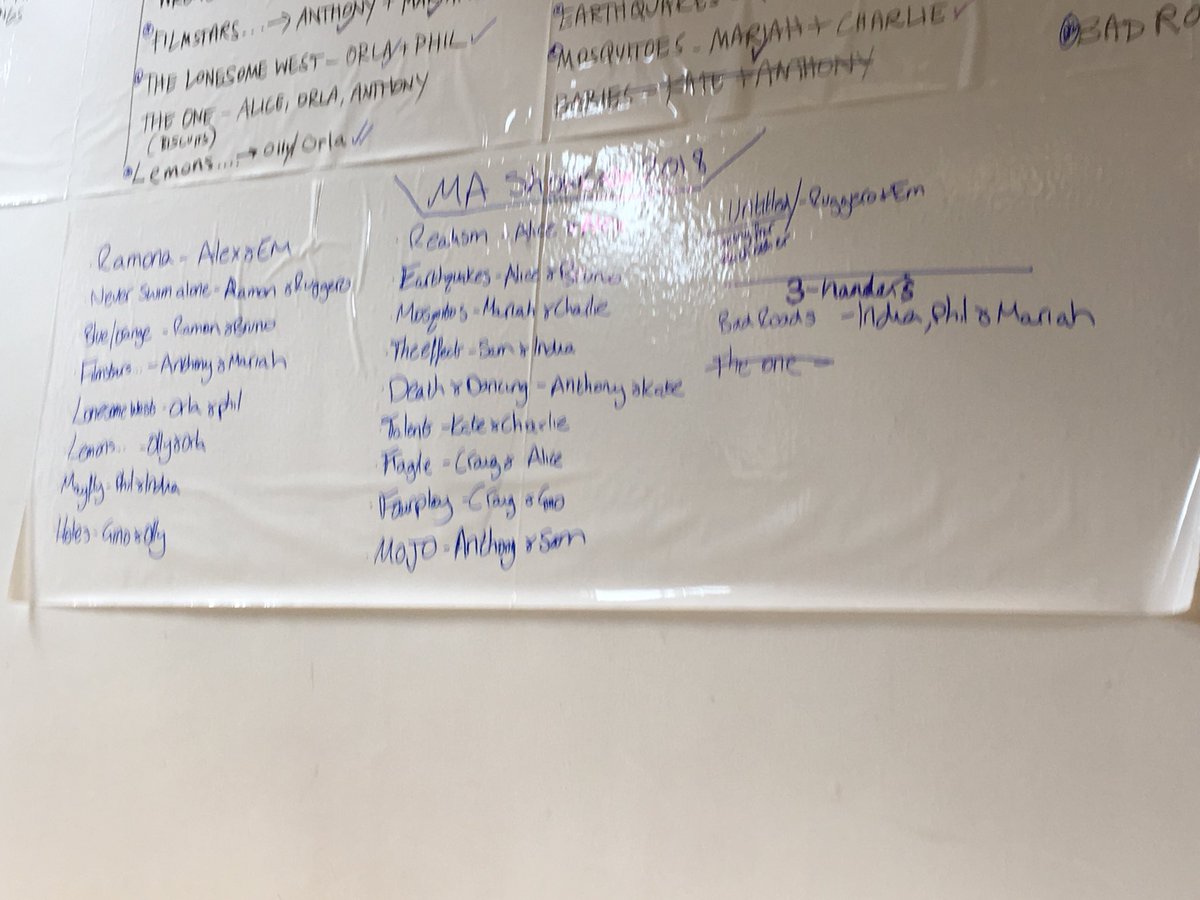 FILMSTARS...→ ANTHONY +
THE LONESOME WEST - ORLA + PHIL ✓
THE ONE - ALICE, ORLA, ANTHONY
(BISCUITS)
Lemons...→ Olly/Orla ✓✓
EARTHQUAKES
MOSQUITOES - MARIAH + CHARLIE ✓
BABIES - KATE + ANTHONY
BAD RO
MA 2018
Ramona - Alex & Em
Never Swim alone - Ramon & Ruggero
Blue/orange - Ramon & Bruno
Filmstars... - Anthony & Mariah
Lonesome West - Orla & phil
Lemons... - Olly & Orla
Mayfly - Phil & India
Holes - Gino & Olly
Realism - Alice
Earthquakes - Alice & Bruno
Mosquitos - Mariah & Charlie
The effect - Sam & India
Death & Dancing - Anthony & Kate
Talent - Kate & Charlie
Fragile - Craig & Alice
Fairplay - Craig & Gino
MOJO - Anthony & Sam
Untitled/ - Ruggero & Em
3-hander's
Bad Roads - India, Phil & Mariah
The one -